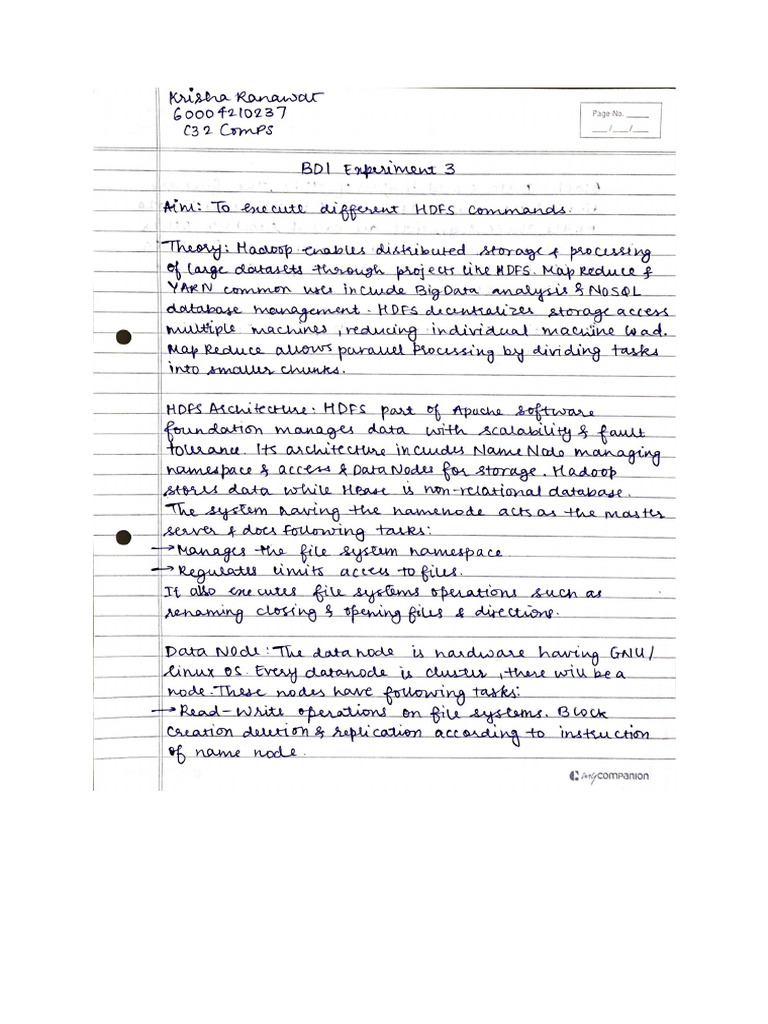 Krisha Ranawat
60004210237
C32 Comps
Page No. ____
___/___/___
BDI Experiment 3
Aim: To execute different HDFS commands.
Theory: Hadoop enables distributed storage & processing
of large datasets through projects like HDFS. Map Reduce &
YARN common uses include Big Data analysis & NoSQL
database management. HDFS decentralizes storage access
multiple machines, reducing individual machine load.
Map Reduce allows parallel processing by dividing tasks
into smaller chunks.
HDFS Architecture: HDFS part of Apache software
foundation manages data with scalability & fault
tolerance. Its architecture includes Name Node managing
namespace & access & Data Nodes for storage. Hadoop
stores data while Hbase is non-relational database.
The system having the namenode acts as the master
server & does following tasks:
→ Manages the file system namespace
→ Regulates limits access to files.
It also executes file systems operations such as
renaming closing & opening files & directions.
Data Node: The datanode is hardware having GNU/
linux OS. Every datanode is cluster, there will be a
node. These nodes have following tasks:
→ Read-Write operations on file systems. Block
creation deletion & replication according to instruction
of name node.
mycompanion